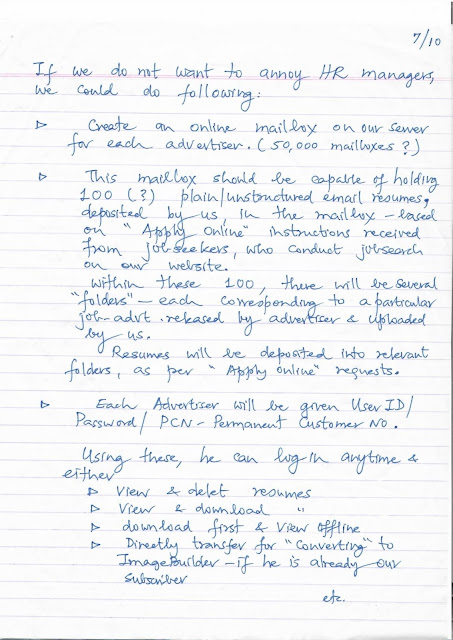 7/10
If we do not want to annoy HR managers,
we could do following:
▷ Create an online mailbox on our server
for each advertiser. (50,000 mailboxes ?)
▷ This mailbox should be capable of holding
100 (?) plain/unstructured email resumes,
deposited by us, in the mailbox - based
on "Apply Online" instructions received
from job-seekers, who conduct jobsearch
on our website.
Within these 100, there will be several
"folders" - each corresponding to a particular
job-advt. released by advertiser & uploaded
by us.
Resumes will be deposited into relevant
folders, as per "Apply online" requests.
▷ Each Advertiser will be given User ID/
Password/ PCN - Permanent Customer No.
Using these, he can log-in anytime &
either
▷ View & delet resumes
▷ View & download "
▷ download first & View Offline
▷ Directly transfer for "Converting" to
ImageBuilder - if he is already our
Subscriber
etc.